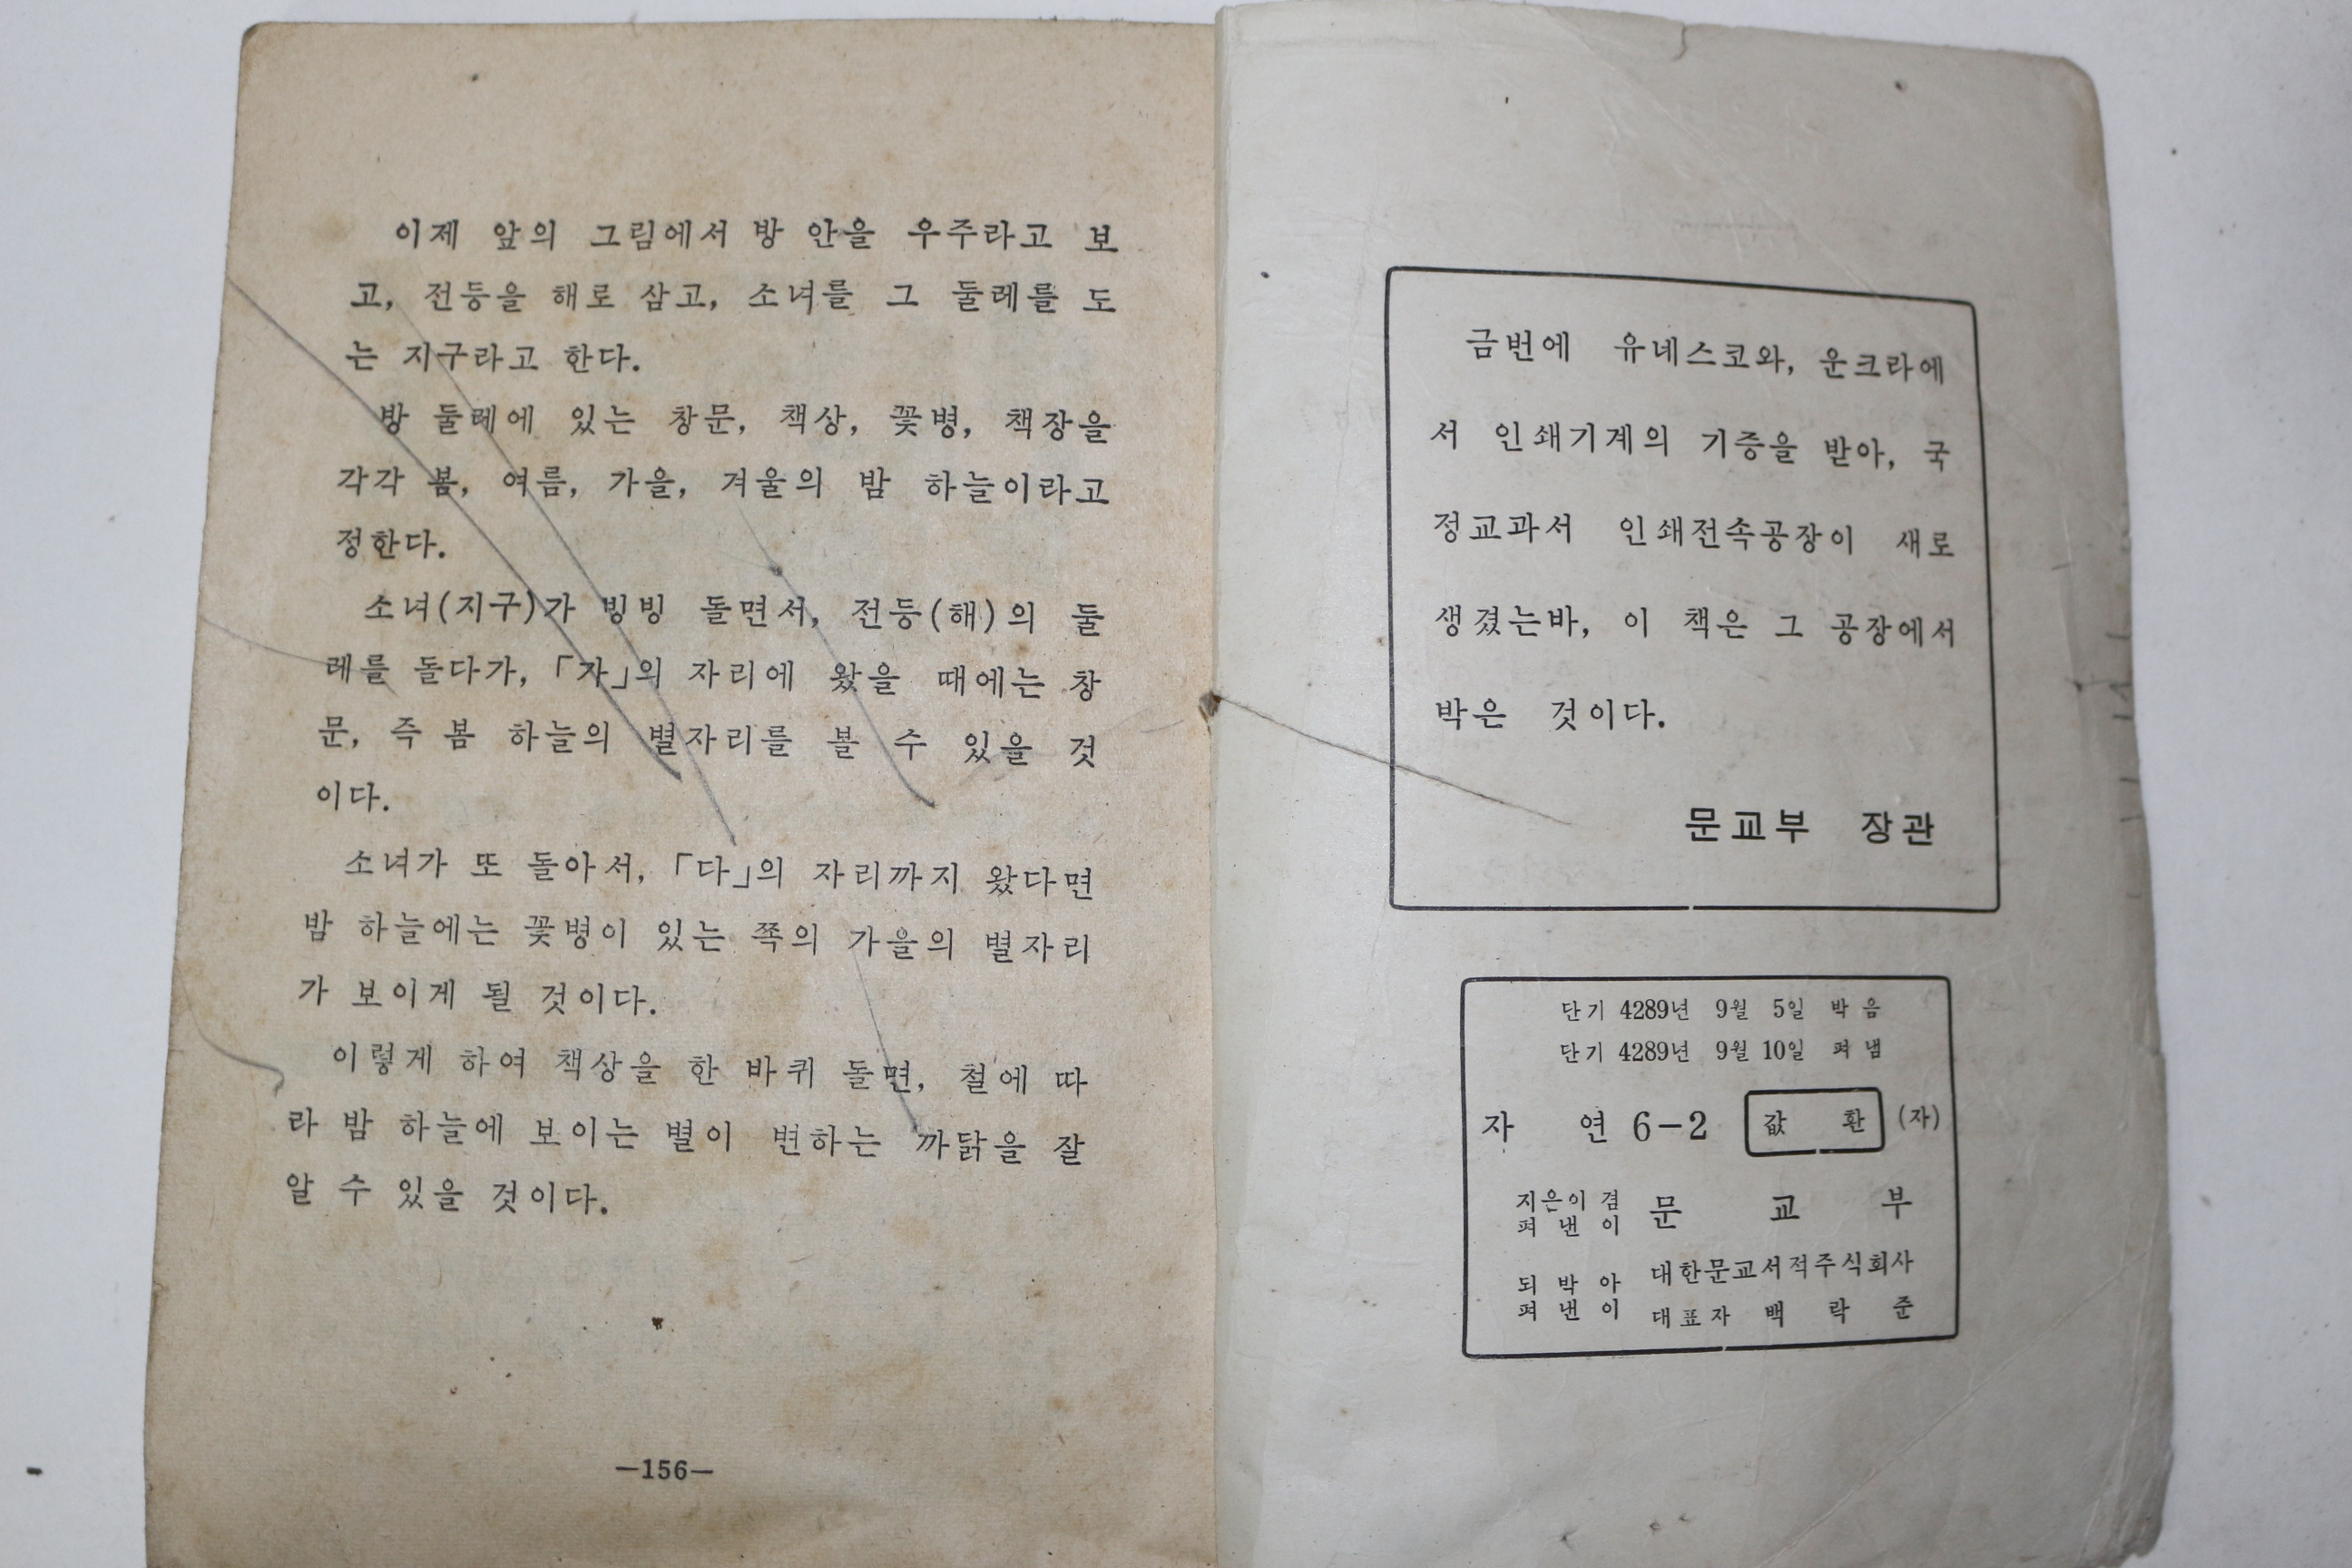 이제 앞의 그림에서 방 안을 우주라고 보
고, 전등을 해로 삼고, 소녀를 그 둘레를 도
는 지구라고 한다.
방 둘레에 있는 창문, 책상, 꽃병, 책장을
각각 봄, 여름, 가을, 겨울의 밤 하늘이라고
정한다.
소녀(지구)가 빙빙 돌면서, 전등(해)의 둘
레를 돌다가, 「자」의 자리에 왔을 때에는 창
문, 즉 봄 하늘의 별자리를 볼 수 있을 것
이다.
소녀가 또 돌아서, 「다」의 자리까지 왔다면
밤 하늘에는 꽃병이 있는 쪽의 가을의 별자리
가 보이게 될 것이다.
이렇게 하여 책상을 한 바퀴 돌면, 철에 따
라 밤 하늘에 보이는 별이 변하는 까닭을 잘
알 수 있을 것이다.
—156—
금번에 유네스코와, 운크라에
서 인쇄기계의 기증을 받아, 국
정교과서 인쇄전속공장이 새로
생겼는바, 이 책은 그 공장에서
박은 것이다.
문교부 장관
단기 4289년 9월 5일 박음
단기 4289년 9월 10일 펴냄
자 연 6-2 값 환 (자)
지은이 겸
펴 낸 이 문 교 부
되 박 아 대한문교서적주식회사
펴 낸 이 대표자 백 락 준